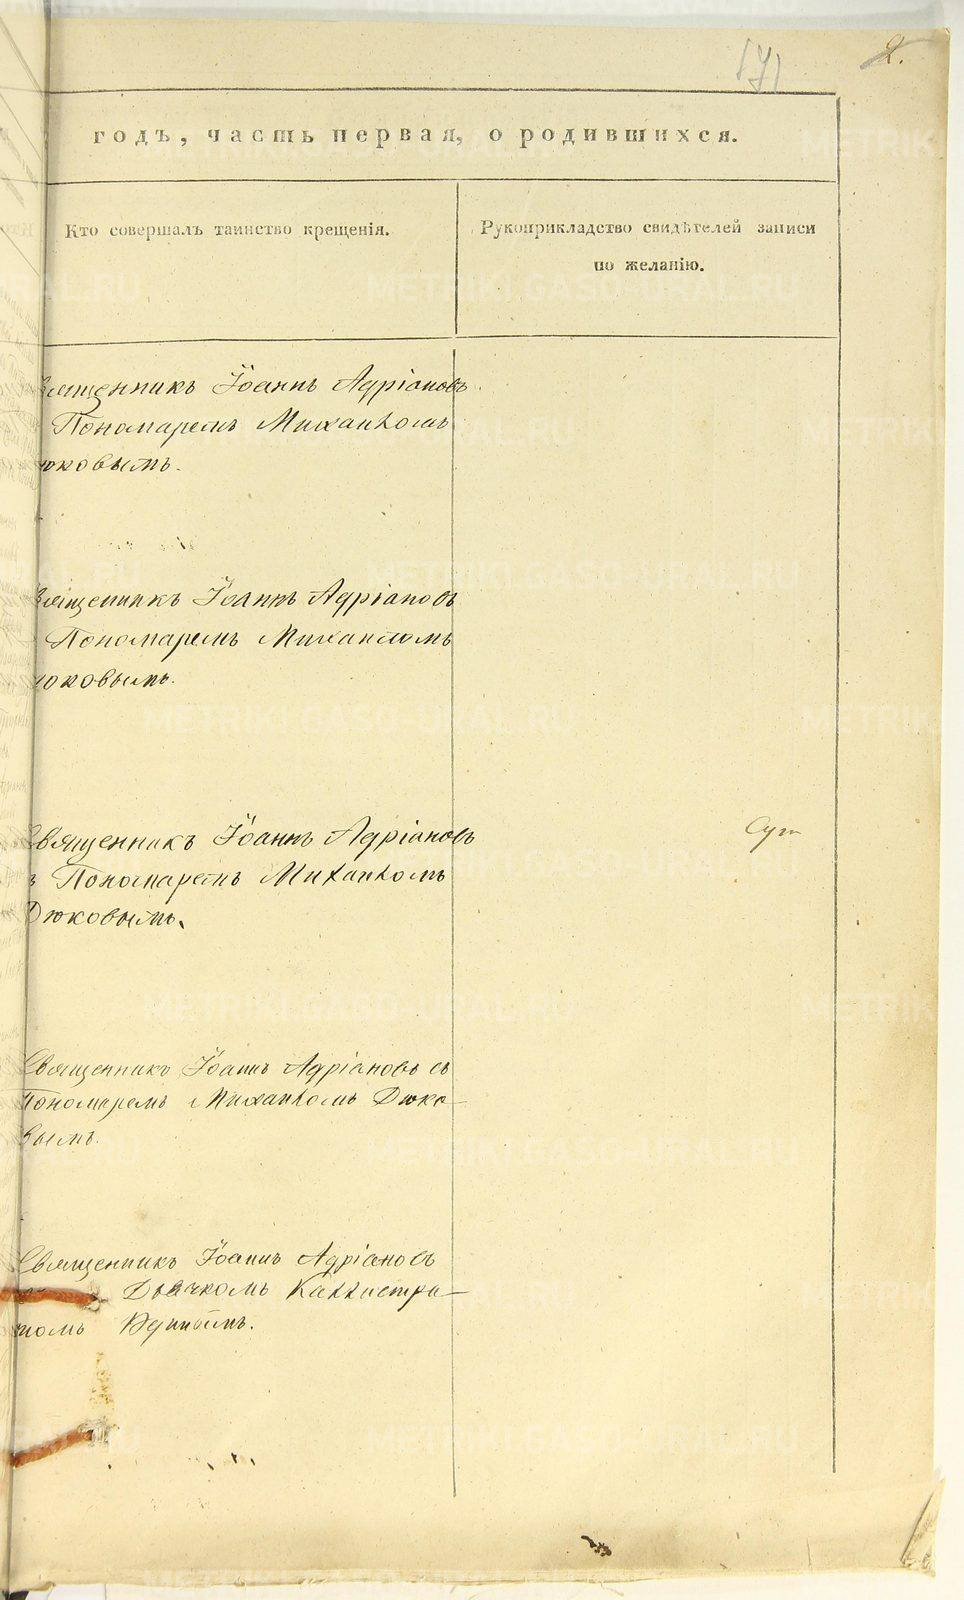 171
2.
годъ, часть первая, о родившихся.
Кто совершалъ таинство крещенія.
Рукоприкладство свидѣтелей записи
по желанію.
вященникъ Іоаннъ Адріановъ
Пономаремъ Михаиломъ
юковымъ.
вященникъ Іоаннъ Адріановъ
Пономаремъ Михаиломъ
юковымъ.
Священникъ Іоаннъ Адріановъ
ъ Пономаремъ Михаиломъ
Дюковымъ.
Священникъ Іоаннъ Адріановъ съ
Пономаремъ Михаиломъ Дюко-
вымъ.
Священникъ Іоаннъ Адріановъ
Дьячкомъ Каллистра-
томъ
METRIKI.GASO-URAL.RU